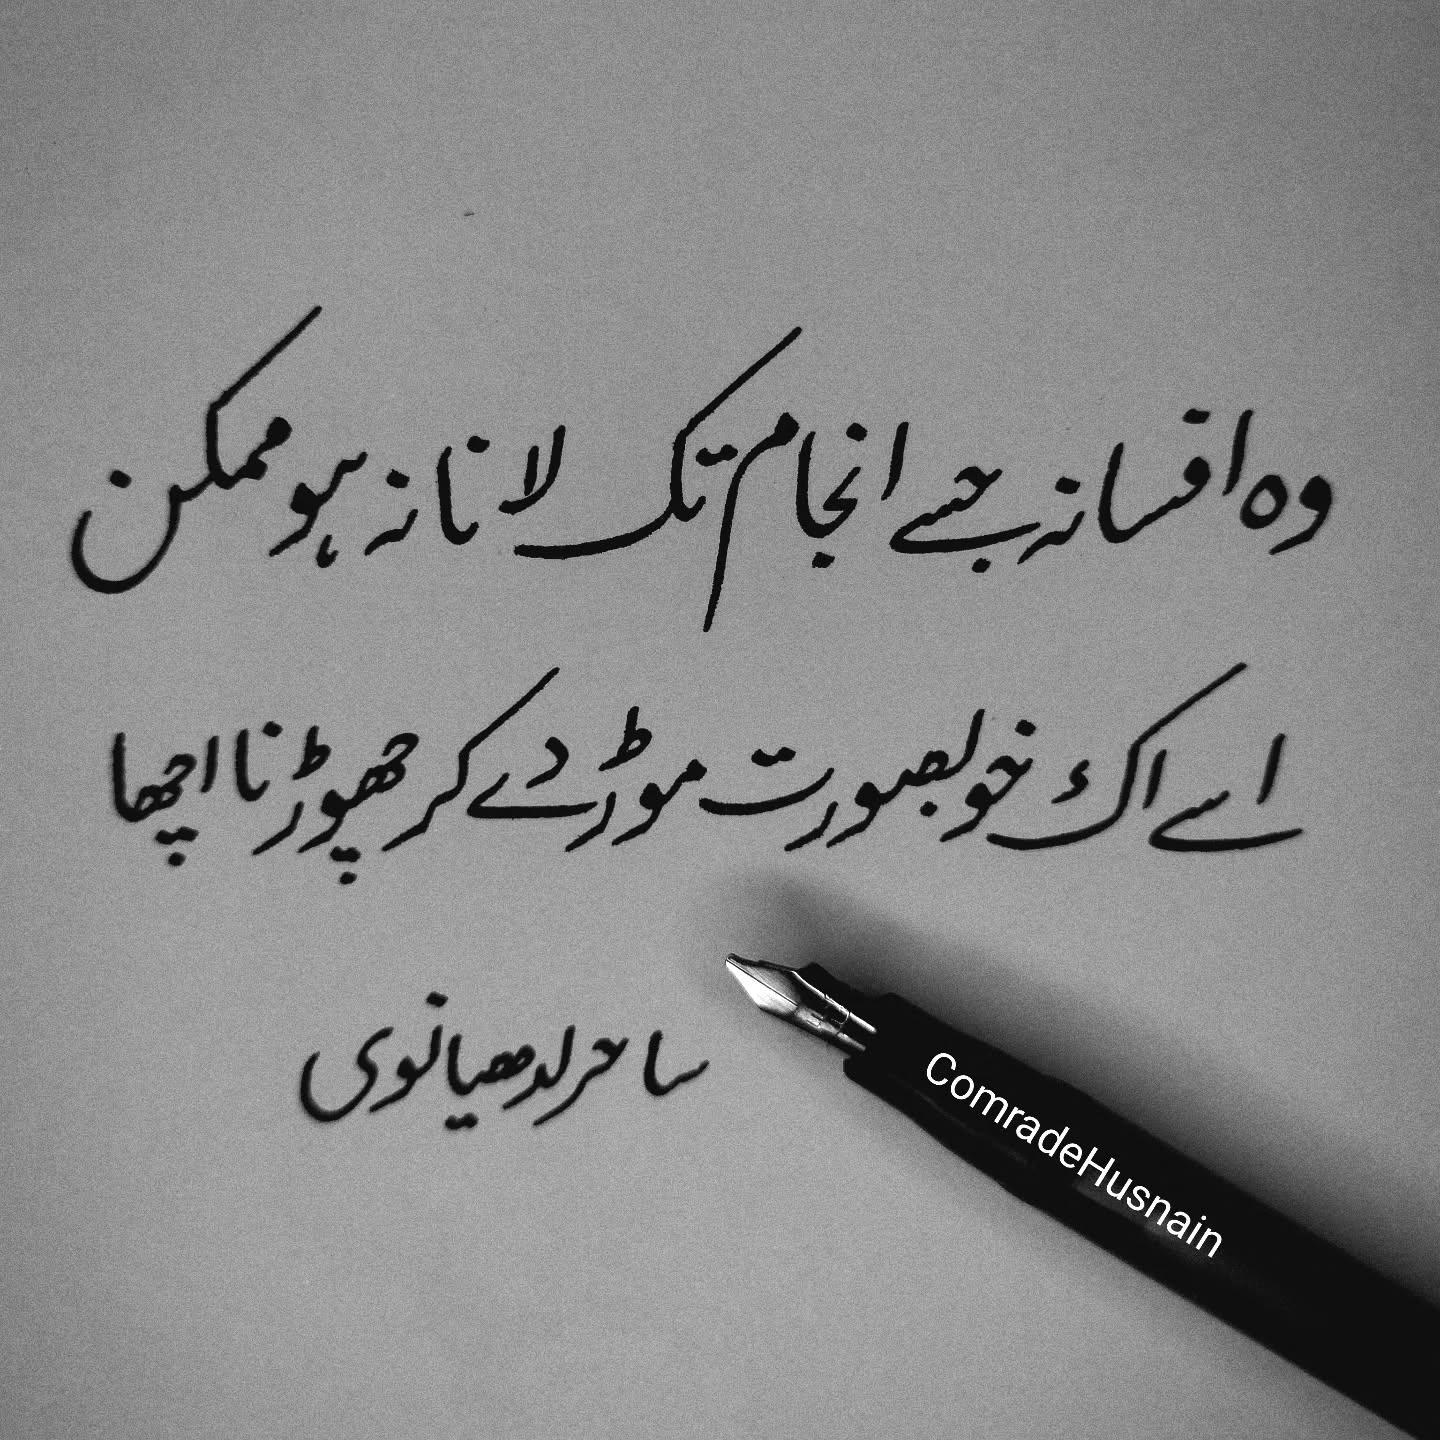 وہ افسانہ جسے انجام تک لانا نہ ہو ممکن
اسے اک خوبصورت موڑ دے کر چھوڑنا اچھا
ساحر لدھیانوی
ComradeHusnain